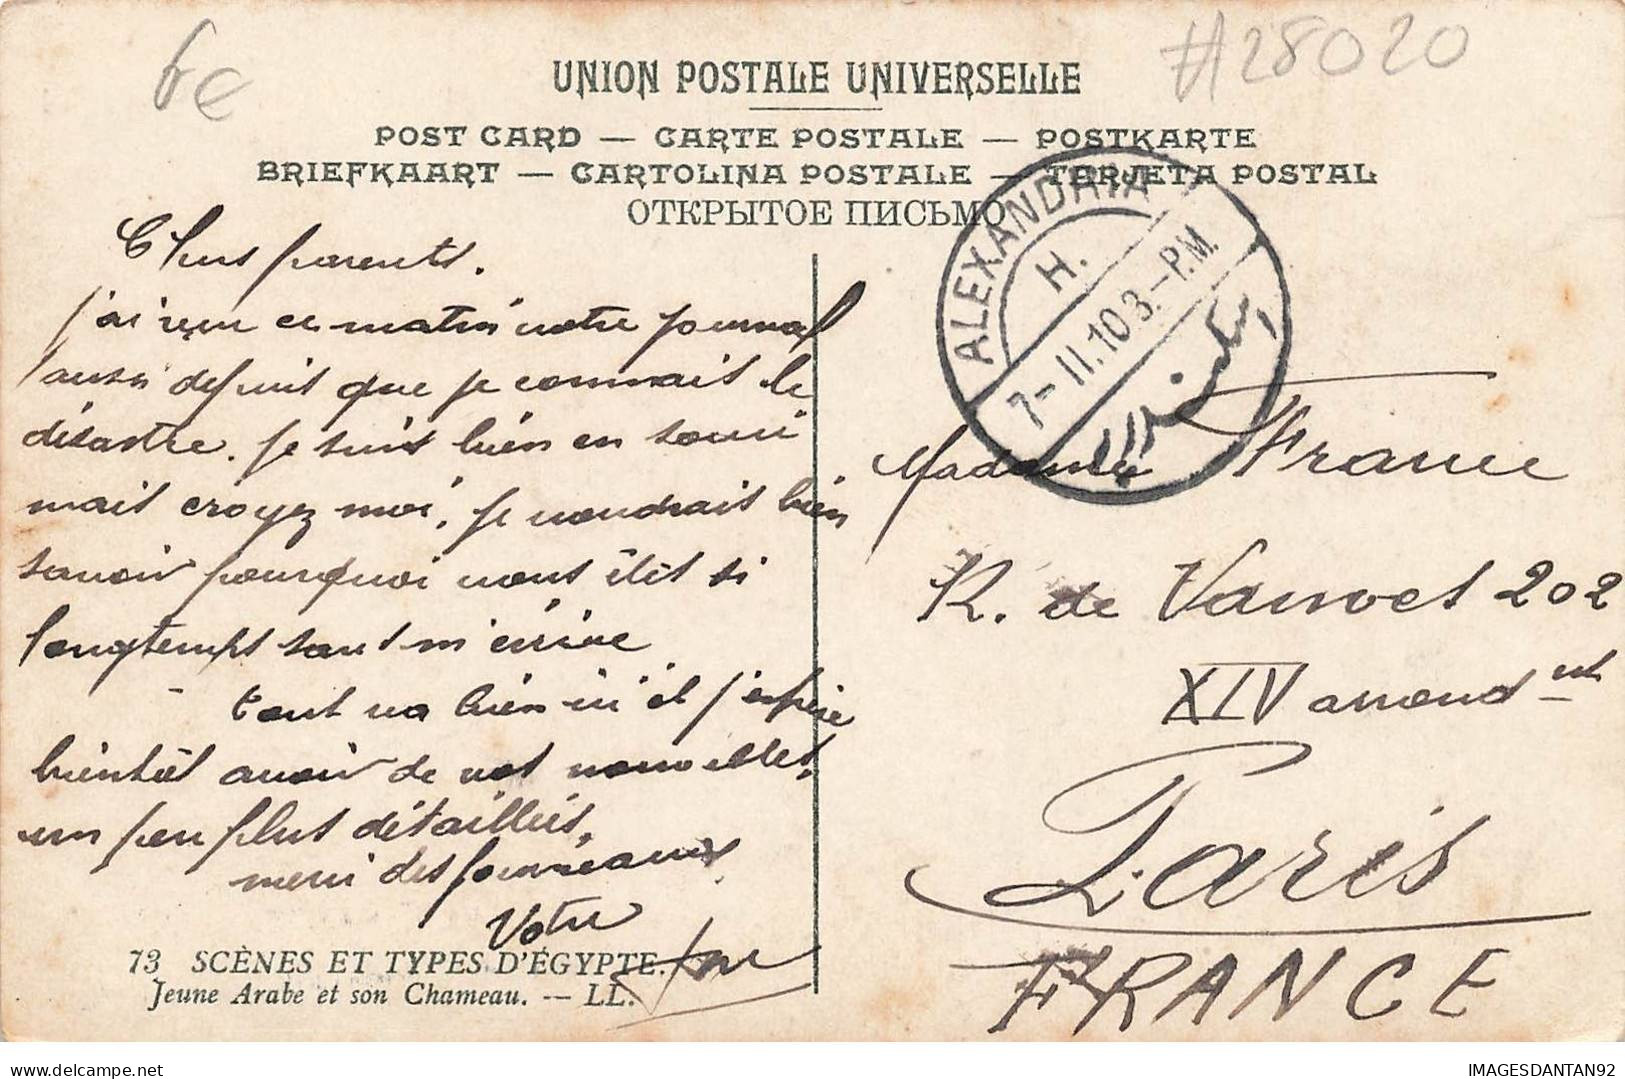 6€
#28020
UNION POSTALE UNIVERSELLE
POST CARD — CARTE POSTALE — POSTKARTE
BRIEFKAART — CARTOLINA POSTALE — TARJETA POSTAL
ОТКРЫТОЕ ПИСЬМО
ALEXANDRIA
H.
7-II.10 3.-P.M.
Chers parents.
j'ai reçu ce matin votre journal
aussi depuis que je connais le
désastre. Je suis bien en souci
mais croyez moi, je voudrais bien
savoir pourquoi vous êtes si
longtemps sans m'écrire
tout va bien ici et j'espère
bientôt avoir de vos nouvelles,
un peu plus détaillés.
merci des journeaux
Votre
Madame France
R. de Vanves 202
XIV arrond nt
Paris
FRANCE
73 SCÈNES ET TYPES D'ÉGYPTE.
Jeune Arabe et son Chameau. -- LL.
IMAGESDANTAN92